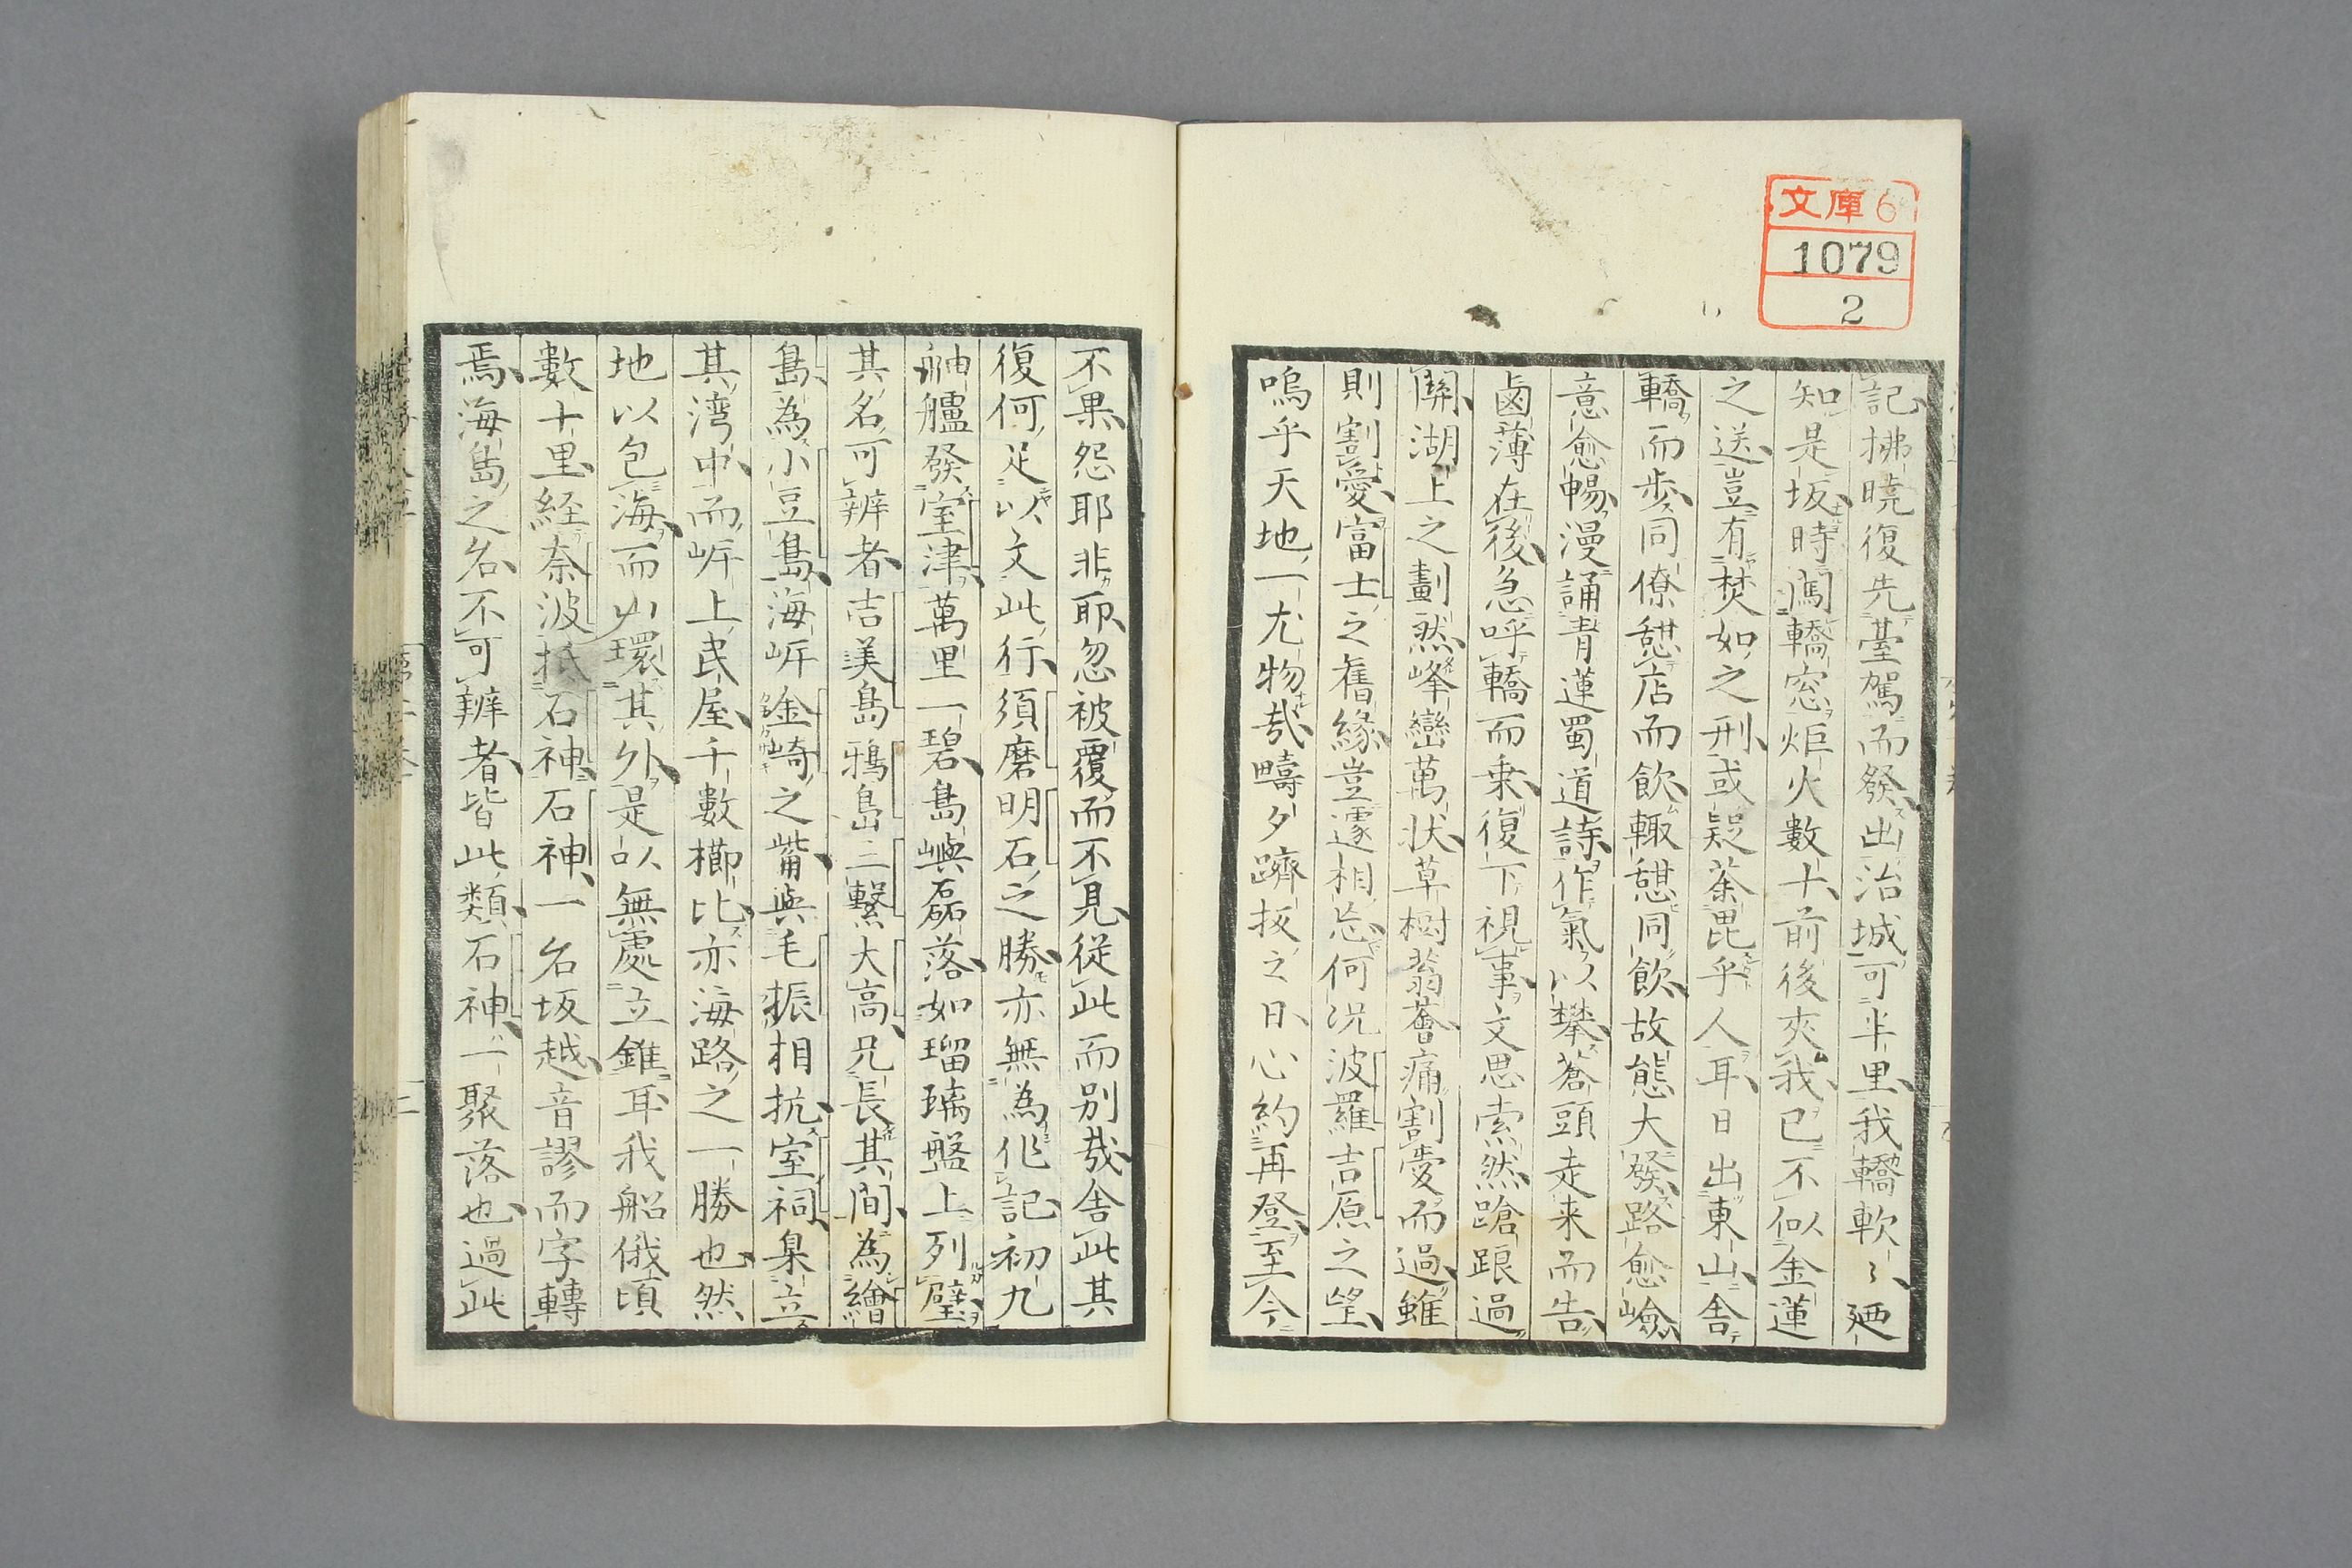 文庫6
1079
2
記拂曉復先臺駕而發出治城可半里我轎軟〻廼
知是坂時闖轎窓炬火數十前後夾我已不似金蓮
之送豈有焚如之刑或疑荼毘乎人耳日出東山舍
轎而歩同僚憇店而飲輙憇同飲故態大發路愈嶮
意愈暢漫誦青蓮蜀道詩作氣以攀蒼頭走来而告
鹵薄在後急呼轎而乗復下視事文思索然蹌踉過
關湖上之劃然峰巒萬状草樹蓊薈痛割愛而過雖
則割愛富士之舊緣豈遽相忘何况波羅吉原之望
嗚乎天地一尤物哉疇夕躋扳之日心約再登至今
不果怨耶非耶忽被覆而不見従此而別哉舍此其
復何足以文此行須磨明石之勝亦無為作記初九
舳艫發室津萬里一碧島嶼磊落如瑠璃盤上列璧
其名可辨者吉美島鴉島二繫大高兄長其間為繪
島為小豆島海岍金崎之觜與毛振相抗室祠臬立
其湾中而岍上民屋千數櫛比亦海路之一勝也然
地以包海而山環其外是以無處立錐耳我船俄頃
數十里経奈波抵石神石神一名坂越音謬而字轉
焉海島之名不可辨者皆此類石神一聚落也過此